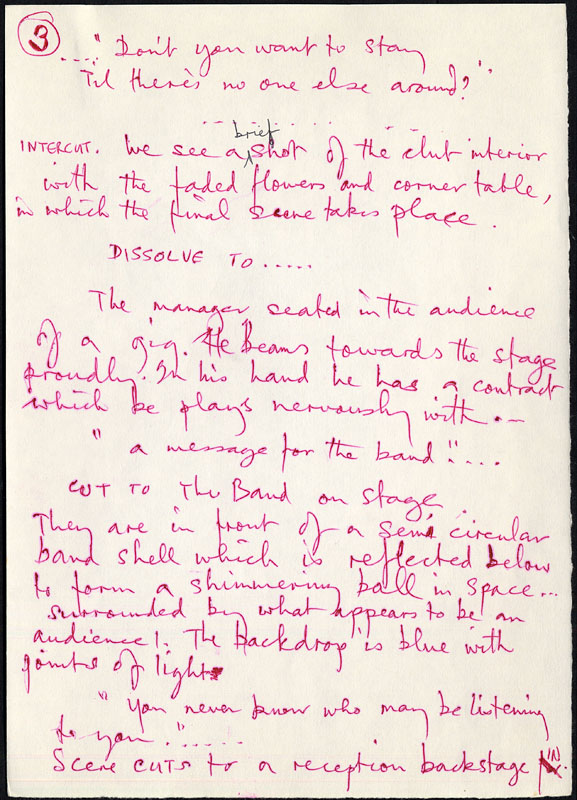 3
....." Don't you want to stay
Til there's no one else around? "
.....
brief
INTERCUT. We see a shot of the club interior
with the faded flowers and corner table,
in which the final scene takes place.
DISSOLVE TO .....
The manager seated in the audience
of a gig. He Beams towards the stage
proudly. In his hand he has a contract
which he plays nervously with.–
" a message for the band "....
CUT TO The Band on stage
They are in front of a semi circular
band shell which is reflected below
to form a shimmering ball in space...
surrounded by what appears to be an
audience!. The backdrop is blue with
points of light
" You never know who may be listening
to you. "......
Scene CUTS to a reception backstage IN.